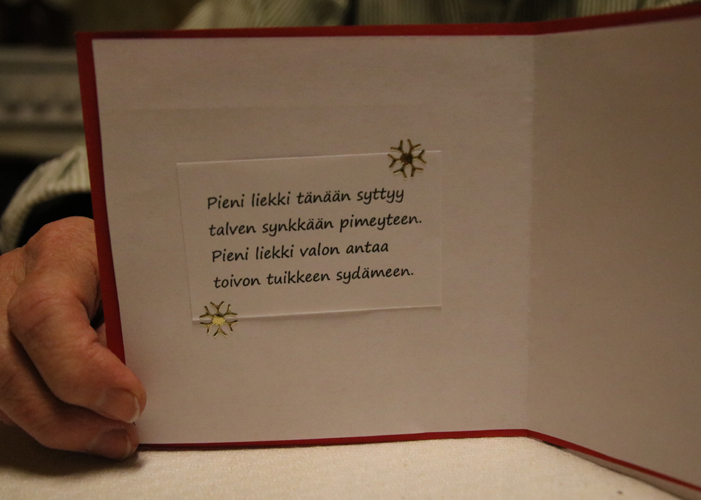 Pieni liekki tänään syttyy
talven synkkään pimeyteen.
Pieni liekki valon antaa
toivon tuikkeen sydämeen.